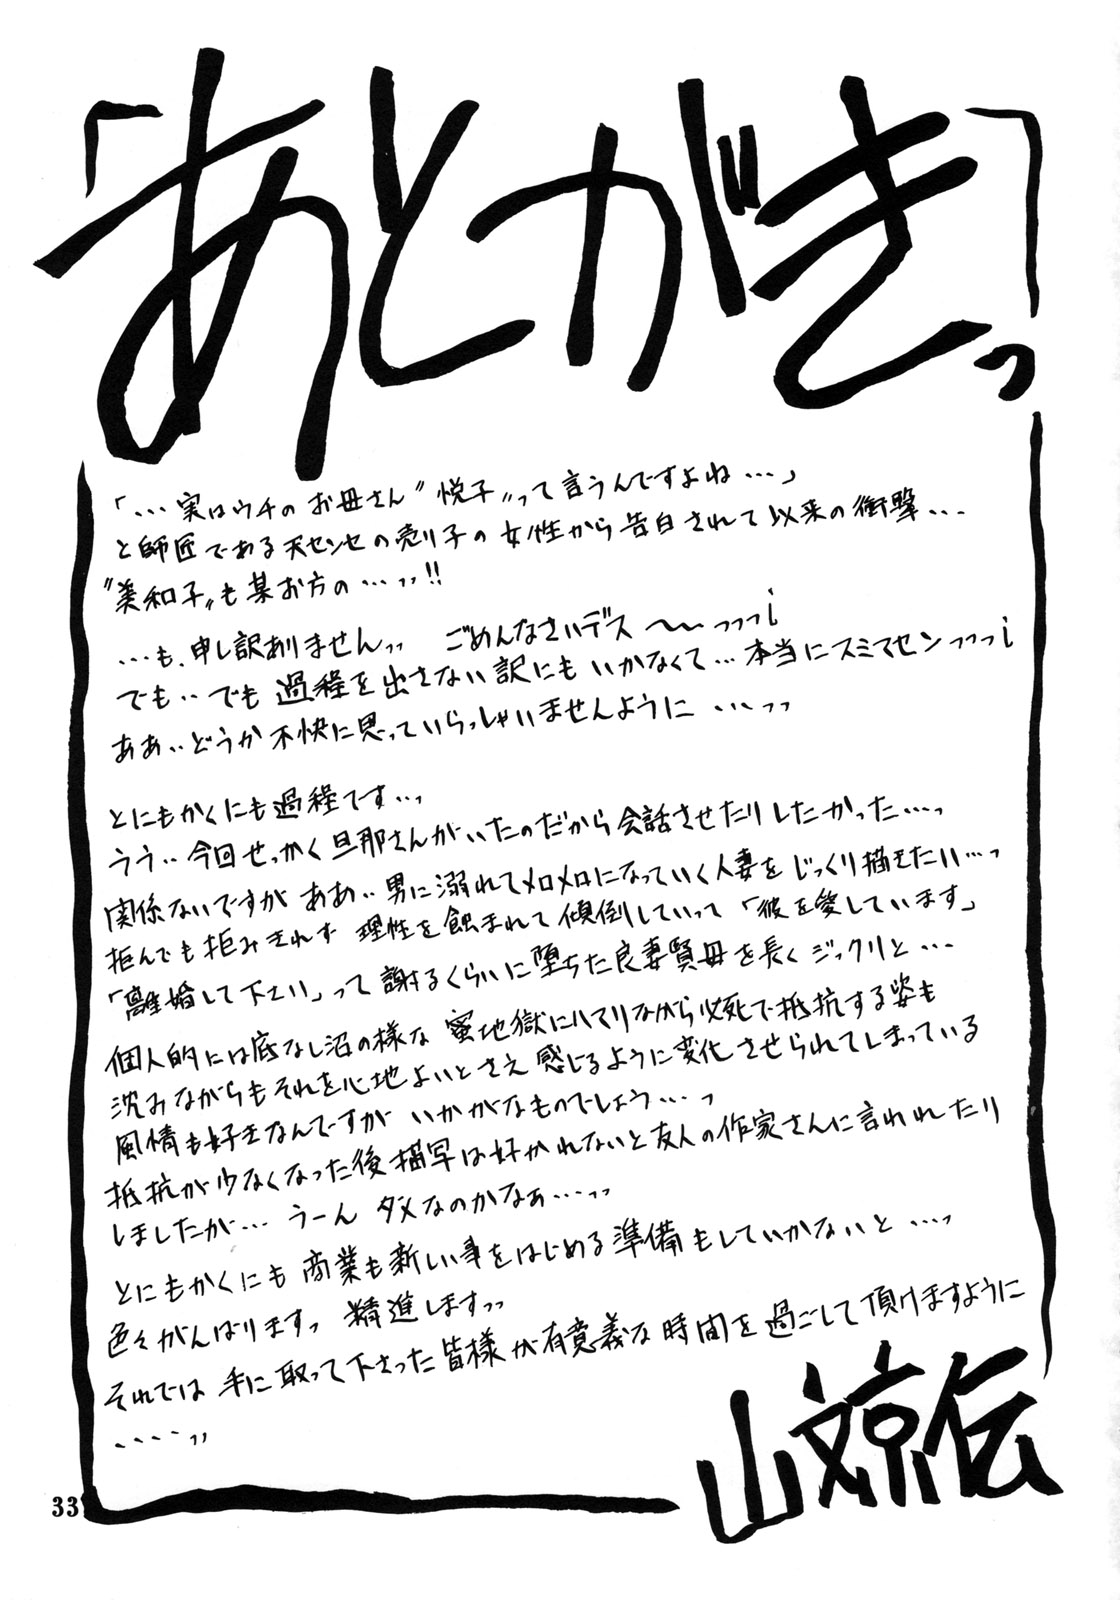 「あとがきっ」
「…実はウチのお母さん〝悦子〟って言うんですよね…」
と師匠である天センセの売り子の女性から告白されて以来の衝撃…
〝美和子〟も某お方の…ッッ!!
…も、申し訳ありませんッッ ごめんなさいデス〜〜ッッっ¡
でも‥でも過程を出さない訳にもいかなくて…本当にスミマセンッッっ¡
ああ‥どうか不快に思っていらっしゃいませんように…ッッ
とにもかくにも過程です…ッ
うう‥今回せっかく旦那さんがいたのだから会話させたりしたかった…ッ
関係ないですがああ‥男に溺れてメロメロになっていく人妻をじっくり描きたい…っ
拒んでも拒みきれず理性を蝕まれて傾倒していって「彼を愛しています」
「離婚して下さい」って謝るくらいに堕ちた良妻賢母を長くジックリと…
個人的には底なし沼の様な蜜地獄にハマリながら必死で抵抗する姿も
沈みながらもそれを心地よいとさえ感じるように変化させられてしまっている
風情も好きなんですがいかがなものでしょう…っ
抵抗が少なくなった後描写は好かれないと友人の作家さんに言われたり
しましたが…うーんダメなのかなぁ…ッッ
とにもかくにも商業も新しい事をはじめる準備もしていかないと…ッ
色々がんばりますっ 精進しますッッ
それでは手に取って下さった皆様が有意義な時間を過ごして頂けますように
‥‥‥ッッ
山文京伝
33